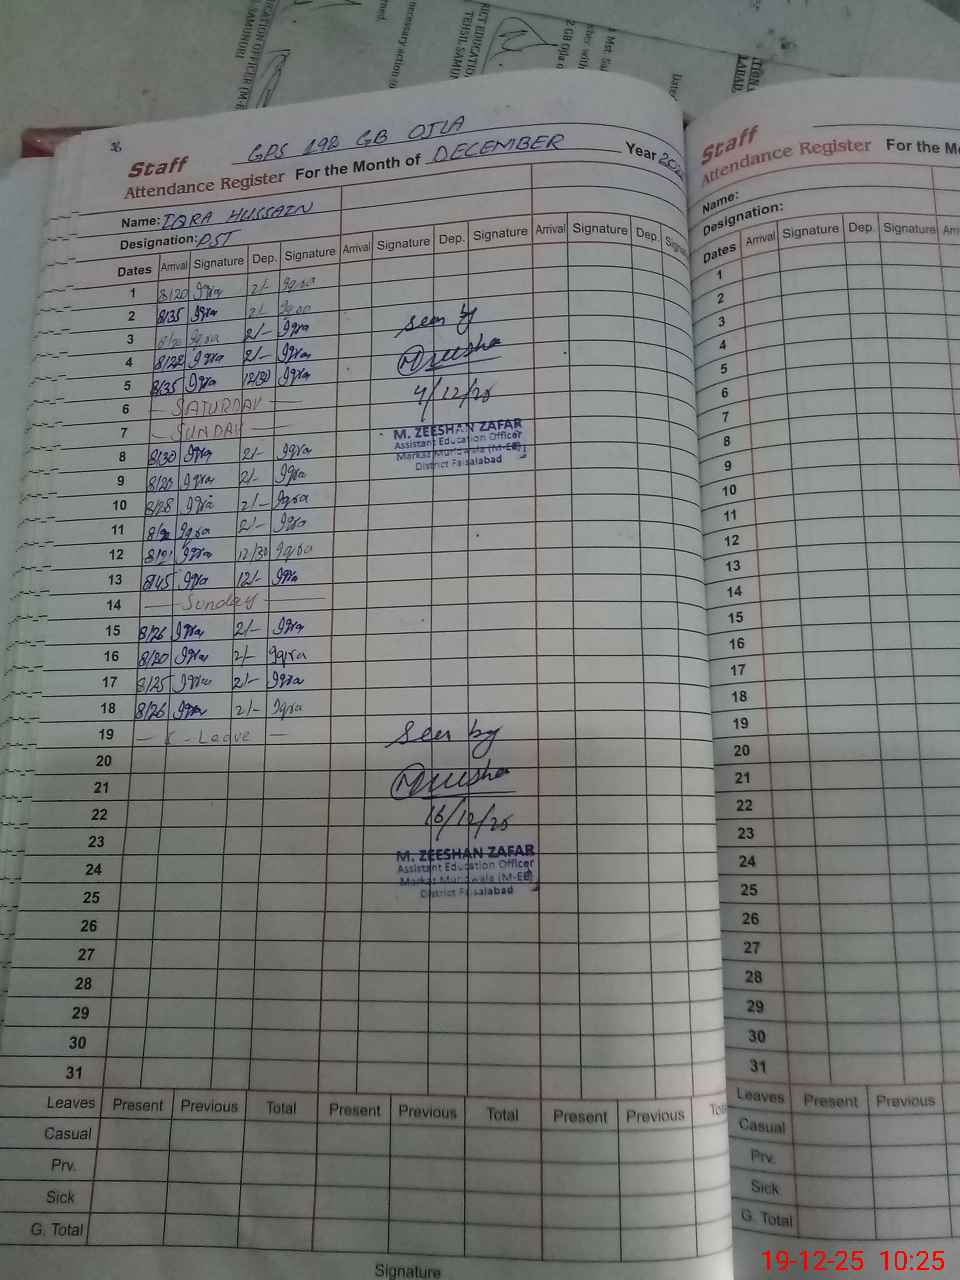 Staff
GPS 192 GB OJLA
Attendance Register For the Month of DECEMBER Year
Name: IQRA HUSSAIN
Designation: PST
Dates Arrival Signature Dep. Signature Arrival Signature Dep. Signature Arrival Signature Dep.
1 8/20 Iqra 2/- Iqra
2 8/35 Iqra 2/- Iqra
3 Iqra 2/- Iqra
4 8/22 Iqra 2/- Iqra
5 8/35 Iqra 12/30 Iqra
6 — SATURDAY —
7 — SUNDAY —
8 8/30 Iqra 2/- Iqra
9 8/20 Iqra 2/- Iqra
10 8/28 Iqra 2/- Iqra
11 Iqra 2/- Iqra
12 8/21 Iqra 12/30 Iqra
13 8/45 Iqra 12/- Iqra
14 — Sunday —
15 8/26 Iqra 2/- Iqra
16 8/20 Iqra 2/- Iqra
17 8/25 Iqra 2/- Iqra
18 8/26 Iqra 2/- Iqra
19 — Leave —
20
21
22
23
24
25
26
27
28
29
30
31
seen by
4/12/25
M. ZEESHAN ZAFAR
Assistant Education Officer
Markaz (M-EE)
District Faisalabad
Seen by
16/12/25
M. ZEESHAN ZAFAR
Assistant Education Officer
Markaz (M-EE)
District Faisalabad
Leaves Present Previous Total Present Previous Total Present Previous
Casual
Prv.
Sick
G. Total
Signature
Staff
Attendance Register For the
Name:
Designation:
Dates Arrival Signature Dep. Signature
1
2
3
4
5
6
7
8
9
10
11
12
13
14
15
16
17
18
19
20
21
22
23
24
25
26
27
28
29
30
31
Leaves Present Previous
Casual
Prv.
Sick
G. Total
19-12-25 10:25